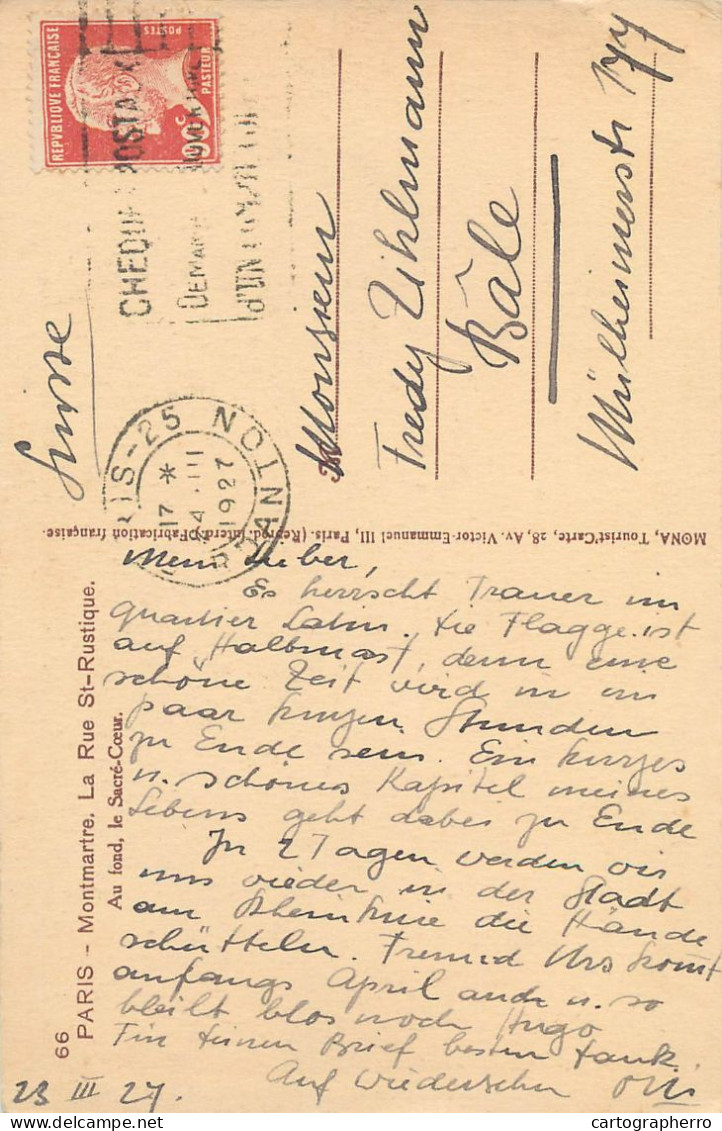 REPVBLIQUE FRANÇAISE
POSTES
PASTEUR
90c
CHEQUE POSTAUX
DEMANDEZ
D'UN
Suisse
PARIS-25
17 *
24 . III
1927
DANTON
Monsieur
Fredy Uhlmann
Bâle
Mülheimerstr 177
MONA, Tourist'Carte, 28, Av. Victor-Emmanuel III, Paris. (Reprod. Interd.) Fabrication française.
66
PARIS - Montmartre. La Rue St-Rustique.
Au fond, le Sacré-Cœur.
Mein Lieber,
Es herrscht Trauer im
quartier Latin. Die Flagge ist
auf Halbmast, denn eine
schöne Zeit wird in ein
paar kurzen Stunden
zu Ende sein. Ein kurzes
u. schönes Kapitel meines
Lebens geht dabei zu Ende
In 2 Tagen werden wir
uns wieder in der Stadt
am Rheinknie die Hände
schütteln. Freund Urs kommt
anfangs April auch u. so
bleibt blos noch Hugo
Für deinen Brief besten Dank.
Auf Wiedersehn
23 III 27.
cartographerro